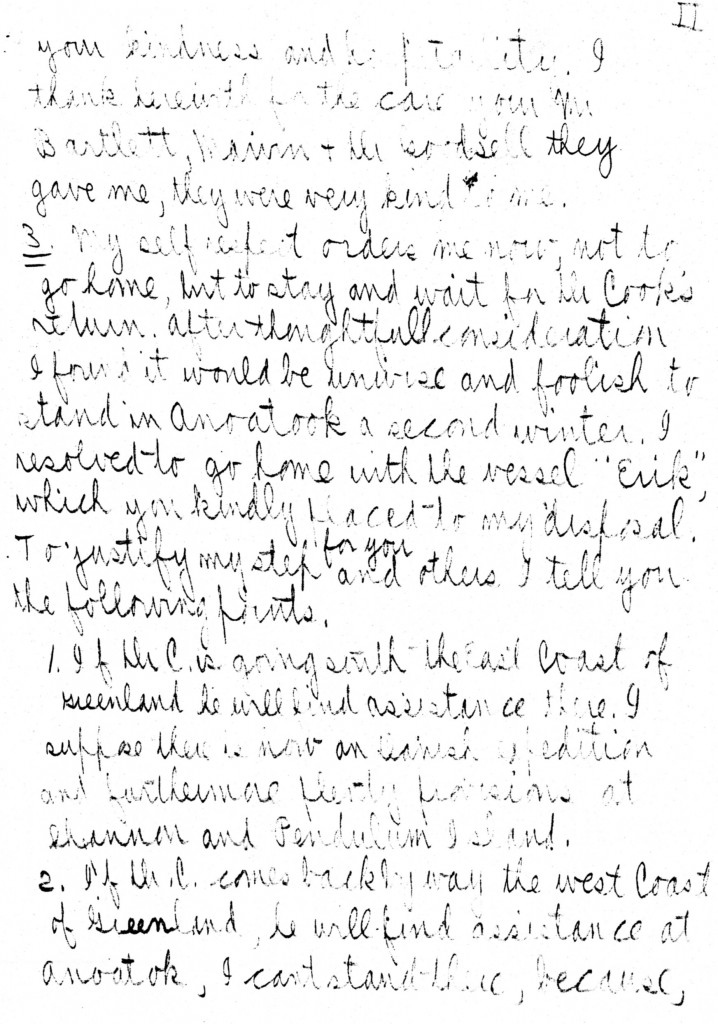 II
your kindness and hospitality. I
thank herewith for the care your Mr
Bartlett, + Dr Goodsell they
gave me, they were very kind to me.
3. My self respect orders me now, not to
go home, but to stay and wait for Dr Cook's
return. After thoughtfull consideration
I found it would be unwise and foolish to
stand in Anoatook a second winter. I
resolved to go home with the vessel "Erik",
which you kindly placed to my disposal.
To justify my step for you and others I tell you
the following points.
1. If Dr C. is going south the East Coast of
Greenland he will find assistance there. I
suppose there is now an Danish expedition
and furthermore plenty provisions at
Shannon and Pendulum Island.
2. If Dr. C. comes back by way the west Coast
of Greenland, he will find assistance at
Anoatok, I cant stand there, because,